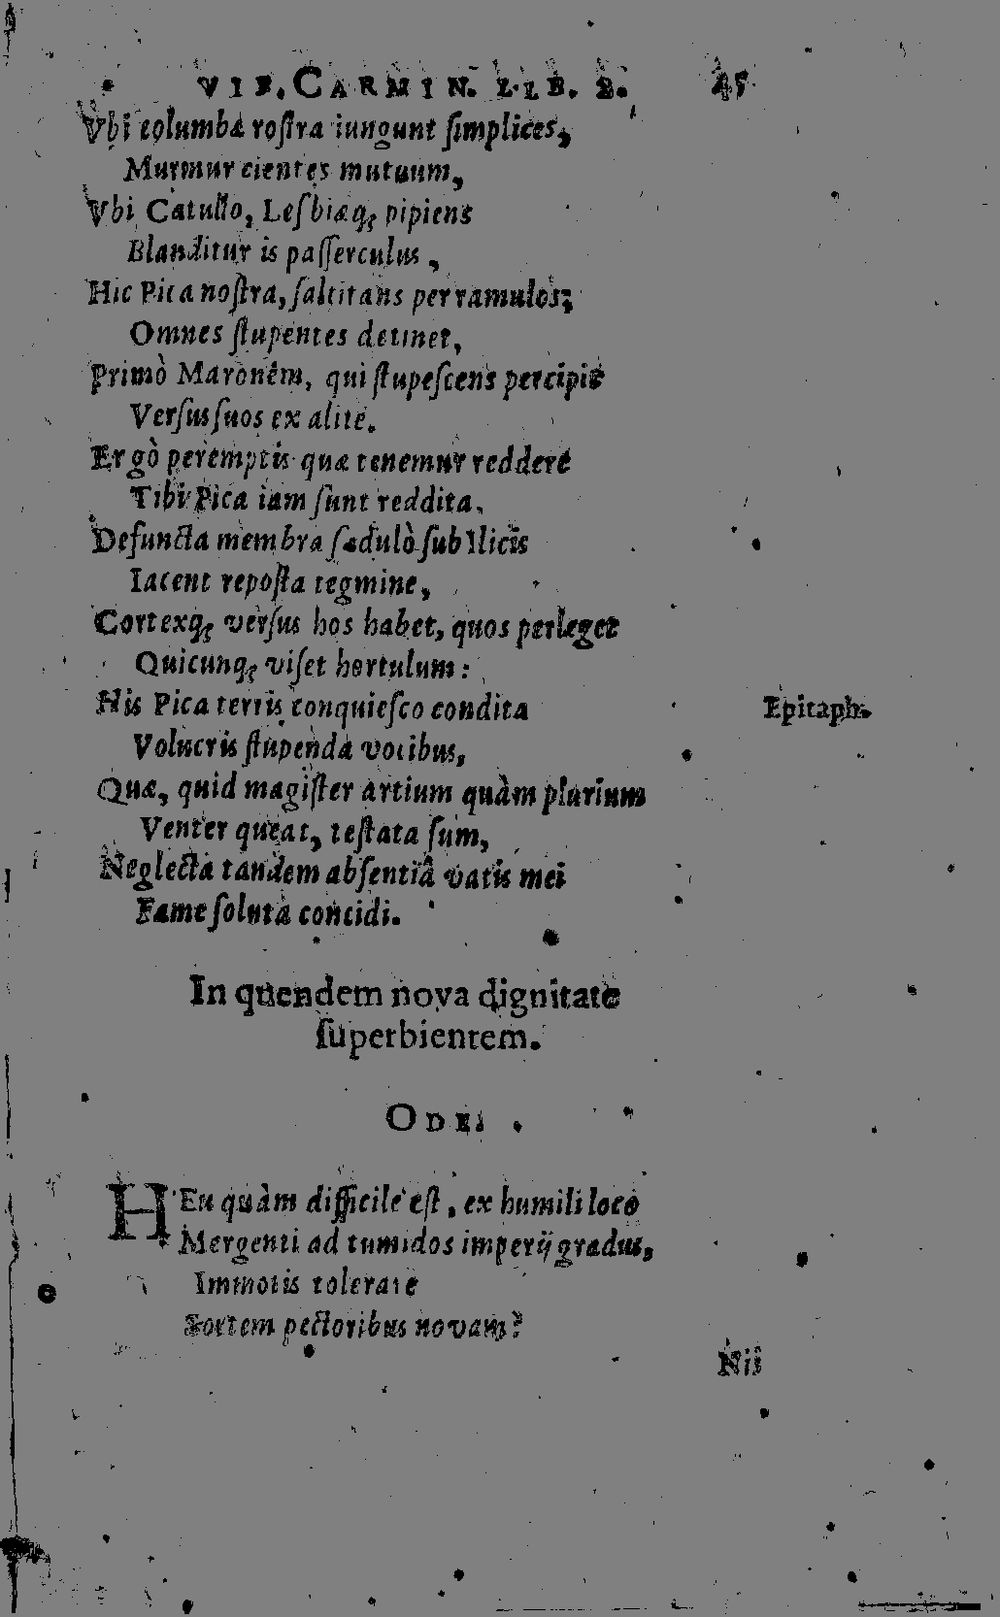 VIE. CARMIN. LIB. 2. 45
Vbi columbæ roſtra iungunt ſimplices,
Murmur cientes mutuum,
Vbi Catullo, Leſbiæq; pipiens
Blanditur is paſſerculus,
Hic Pica noſtra, ſaltitans per ramulos;
Omnes ſtupentes detinet,
Primò Maronēm, qui ſtupeſcens percipit
Verſus ſuos ex alite.
Ergò peremptis quæ tenemur reddere
Tibi Pica iam ſunt reddita.
Defuncta membra ſædulò ſub Ilicis
Iacent repoſta tegmine,
Cortexq; verſus hos habet, quos perleget
Quicunq; viſet hortulum:
His Pica terris conquieſco condita
Epitaph.
Volucris ſtupenda vocibus,
Quæ, quid magiſter artium quàm plurium
Venter queat, teſtata ſum,
Neglecta tandem abſentiâ vatis mei
Fame ſoluta concidi.
In quendem nova dignitate
ſuperbientem.
ODE.
HEu quàm difficile eſt, ex humili loco
Mergenti ad tumidos imperij gradus,
Immotis tolerare
Sortem pectoribus novam?
Nii